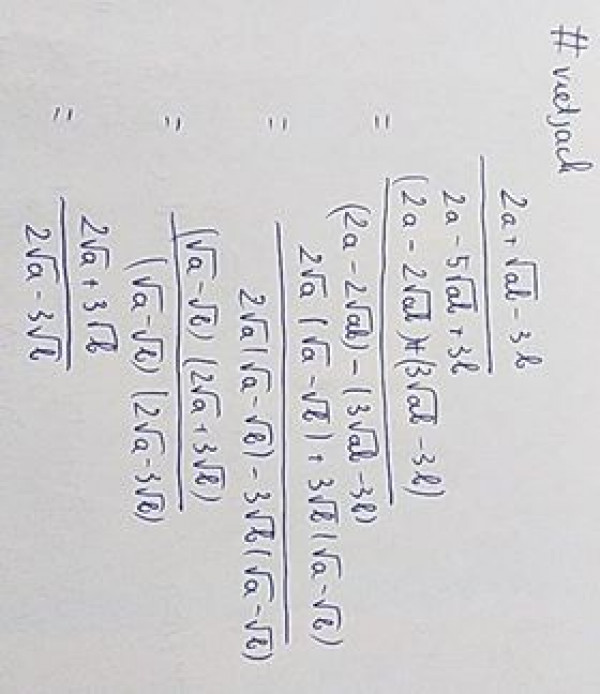 #vietjack
2a + √ab - 3b
2a - 5√ab + 3b
= (2a - 2√ab) + (3√ab - 3b)
(2a - 2√ab) - (3√ab - 3b)
= 2√a (√a - √b) + 3√b (√a - √b)
2√a (√a - √b) - 3√b (√a - √b)
= (√a - √b) (2√a + 3√b)
(√a - √b) (2√a - 3√b)
= 2√a + 3√b
2√a - 3√b